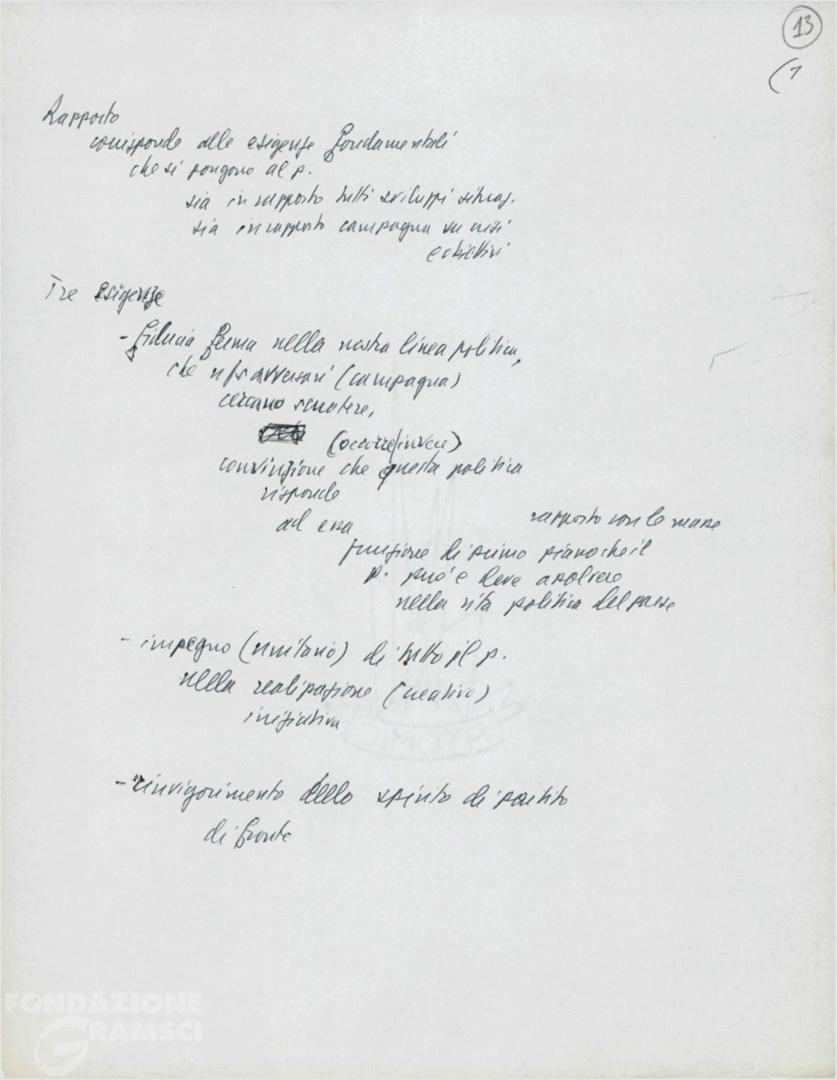 13
(1
Rapporto
corrisponde alle esigenze fondamentali
che si pongono al p.
sia in rapporto tutti sviluppi situaz.
sia in rapporto campagna su crisi
e obiettivi
Tre esigenze
- fiducia ferma nella nostra linea politica,
che avversari (campagna)
cercano scuotere,
(occorre invece)
convinzione che questa politica
risponde
ad essa
rapporto con le masse
funzione di primo piano che il
p. può e deve assolvere
nella vita politica del paese
- impegno (unitario) di tutto il p.
nella realizzazione (creativo)
iniziativa
- rinvigorimento dello spirito di partito
di fronte
FONDAZIONE
GRAMSCI